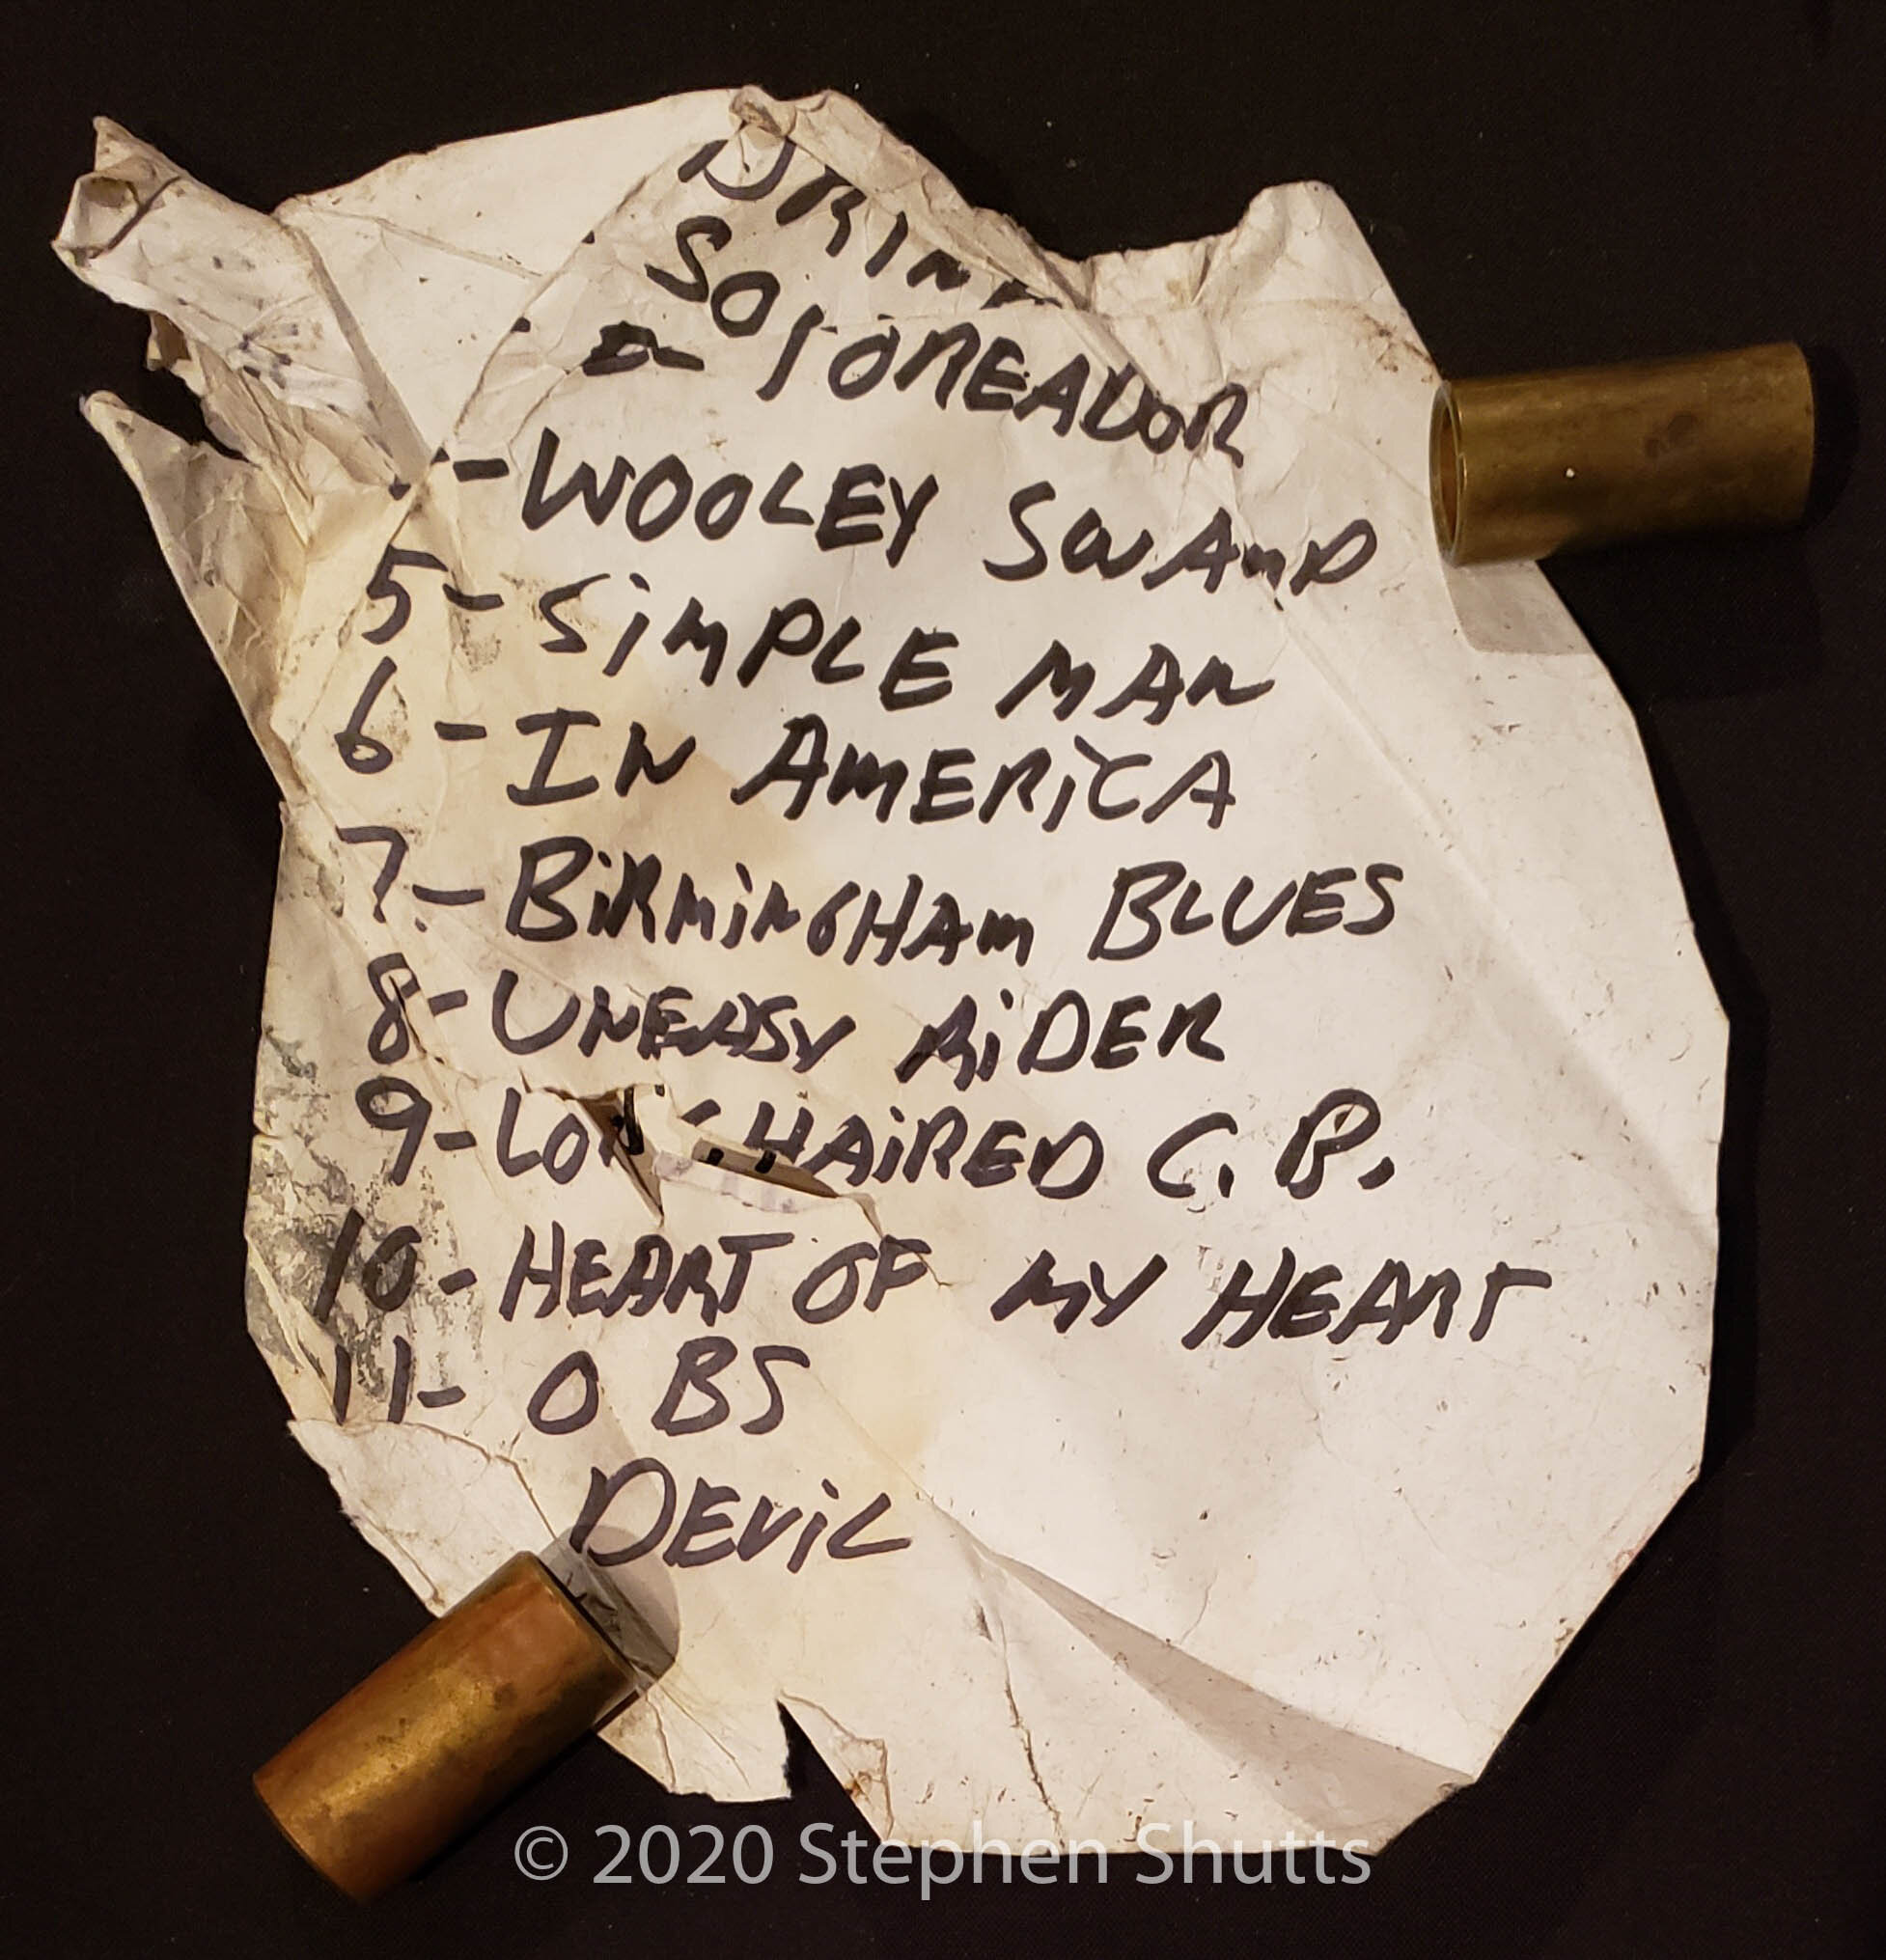 DRINK
SO
TOREADOR
- WOOLEY SWAMP
5 - SIMPLE MAN
6 - IN AMERICA
7 - BIRMINGHAM BLUES
8 - UNEASY RIDER
9 - LONG HAIRED C.B.
10 - HEART OF MY HEART
11 - O BS
DEVIL
© 2020 Stephen Shutts